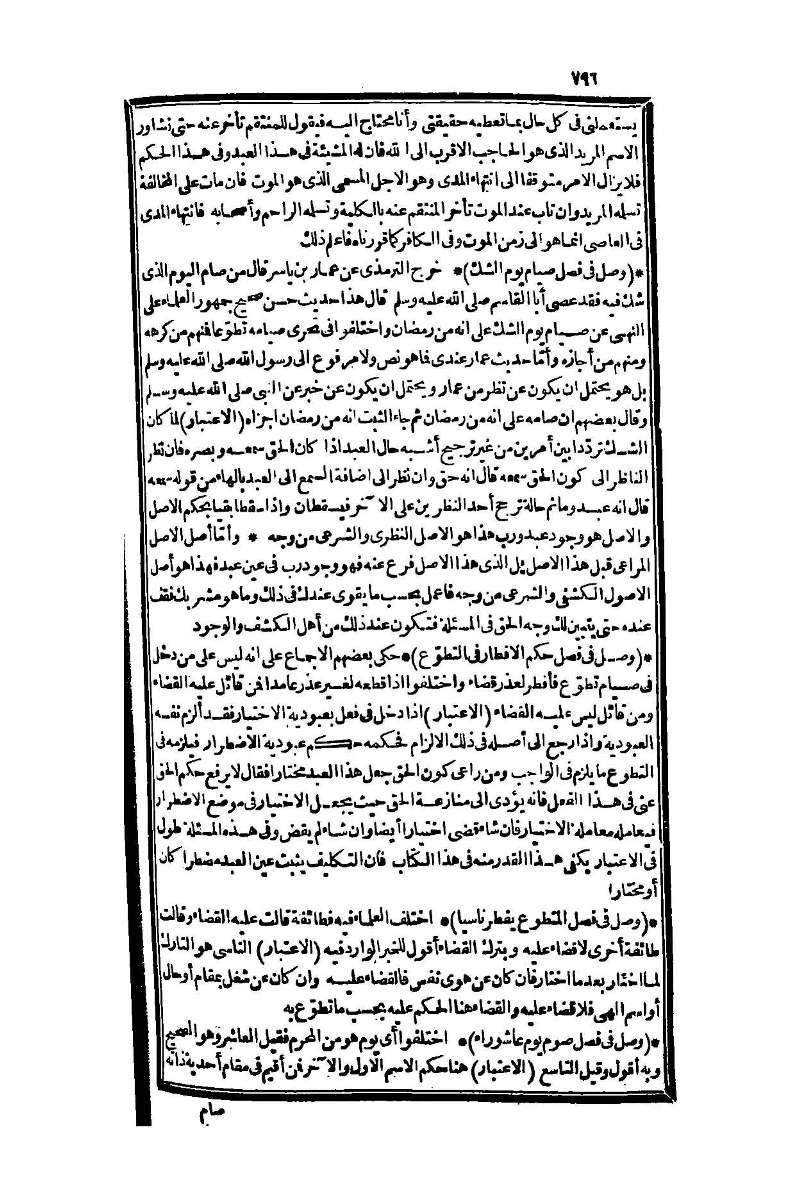 ٧٩٦
يستعملنى فى كل حال بما تعطيه حقيقتى وأنا محتاج اليه فيقول للمنتقم تأخر عنه حتى نشاور
الاسم المريد الذى هو الحاجب الاقرب الى الله فان له المشيئة فى هذا العبد وفى هذا الحكم
فلا يزال الامر متوقفا الى انتهاء المدى وهو الاجل المسمى الذى هو الموت فان مات على المخالفة
تسلمه المريد وان تاب عند الموت تأخر المنتقم عنه بالكلية وتسلمه الراحم وأصحابه فانتهاء المدى
فى العاصى انما هو الى زمن الموت وفى الكافر كما قررناه فاعلم ذلك
*(وصل فى فصل صيام يوم الشك)* خرج الترمذى عن عمار بن ياسر قال من صام اليوم الذى
شك فيه فقد عصى أبا القاسم صلى الله عليه وسلم قال هذا حديث حسن صحيح جمهور العلماء على
النهى عن صيام يوم الشك على انه من رمضان واختلفوا فى تحرى صيامه تطوعا فنهم من كرهه
ومنهم من أجازه وأما حديث عمار عندى فاهو نص ولا مرفوع الى رسول الله صلى الله عليه وسلم
بل هو يحتمل ان يكون عن نظر من عمار ويحتمل ان يكون عن خبر عن النبى صلى الله عليه وسلم
وقال بعضهم ان صامه على انه من رمضان ثم جاء الثبت انه من رمضان اجزاه (الاعتبار) لما كان
الشك ترددا بين أمرين من غير ترجيح أشبه حال العبد اذا كان الحق سمعه وبصره فان نظر
الناظر الى كون الحق سمعه قال انه حق وان نظر الى اضافة السمع الى العبد بالهاء من قوله سمعه
قال انه عبد وما ثم حالة ترجح أحد النظرين على الآخر فيسقطان واذا سقطا بقيا بحكم الاصل
والاصل هو وجود عبد ورب هذا هو الاصل النظرى والشرعى من وجه * وأما أصل الاصل
المراعى قبل هذا الاصل بل الذى هذا الاصل فرع عنه فهو وجود رب فى عين عبد فهذا هو أصل
الاصول الكشفى والشرعى من وجه فاعمل بحسب ما يقوى عندك فى ذلك وما هو مشربك فقف
عنده حتى يتبين لك وجه الحق فى المسئلة فتكون عند ذلك من أهل الكشف والوجود
*(وصل فى فصل حكم الافطار فى التطوع)* حكى بعضهم الاجماع على انه ليس على من دخل
فى صيام تطوع فأفطر لعذر قضاء واختلفوا اذا قطعه لغير عذر عامدا فن قائل عليه القضاء
ومن قائل ليس عليه القضاء (الاعتبار) اذا دخل فى فعل بعبودية الاختيار فقد ألزم نفسه
العبودية واذا رجع الى أصله فى ذلك الالزام فحكمه حكم عبودية الاضطرار فيلزمه فى
التطوع ما يلزم فى الواجب ومن راعى كون الحق جعل هذا العبد مختارا فقال لا يرفع حكم الحق
عنى فى هذا الفعل فانه يؤدى الى منازعة الحق حيث يجعل الاختيار فى موضع الاضطرار
فيعامله معاملة الاختيار فان شاء قضى اختيارا أيضا وان شاء لم يقض وفى هذه المسئلة طول
فى الاعتبار يكفى هذا القدر منه فى هذا الكتاب فان التكليف يثبت عين العبد مضطرا كان
أو مختارا
*(وصل فى فصل المتطوع يفطر ناسيا)* اختلف العلماء فيه فطائفة قالت عليه القضاء وقالت
طائفة أخرى لا قضاء عليه وبترك القضاء أقول للخبر الوارد فيه (الاعتبار) الناسى هو التارك
لما اختار بعد ما اختار فان كان عن هوى نفس فالقضاء عليه وان كان عن شغل بمقام أو حال
أو اسم الهى فلا قضاء عليه والقضاء هنا الحكم عليه بحسب ما تطوع به
*(وصل فى فصل صوم يوم عاشوراء)* اختلفوا أى يوم هو من المحرم فقيل العاشر وهو الصحيح
وبه أقول وقيل التاسع (الاعتبار) هنا حكم الاسم الاول والآخر فن أقيم فى مقام أحدية ذاته
صام